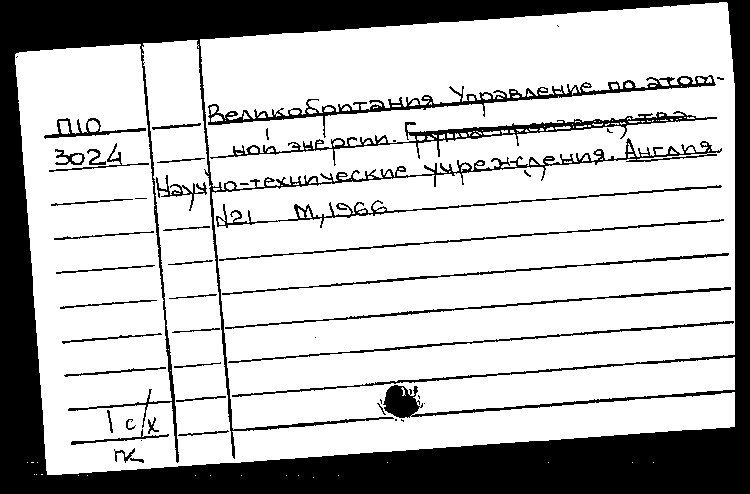 Великобритания. Управление по атом-
П10
ной энергии. Группа производства.
3024
Научно-технические учреждения. Англия.
№21 М., 1966
1 с/х
пк